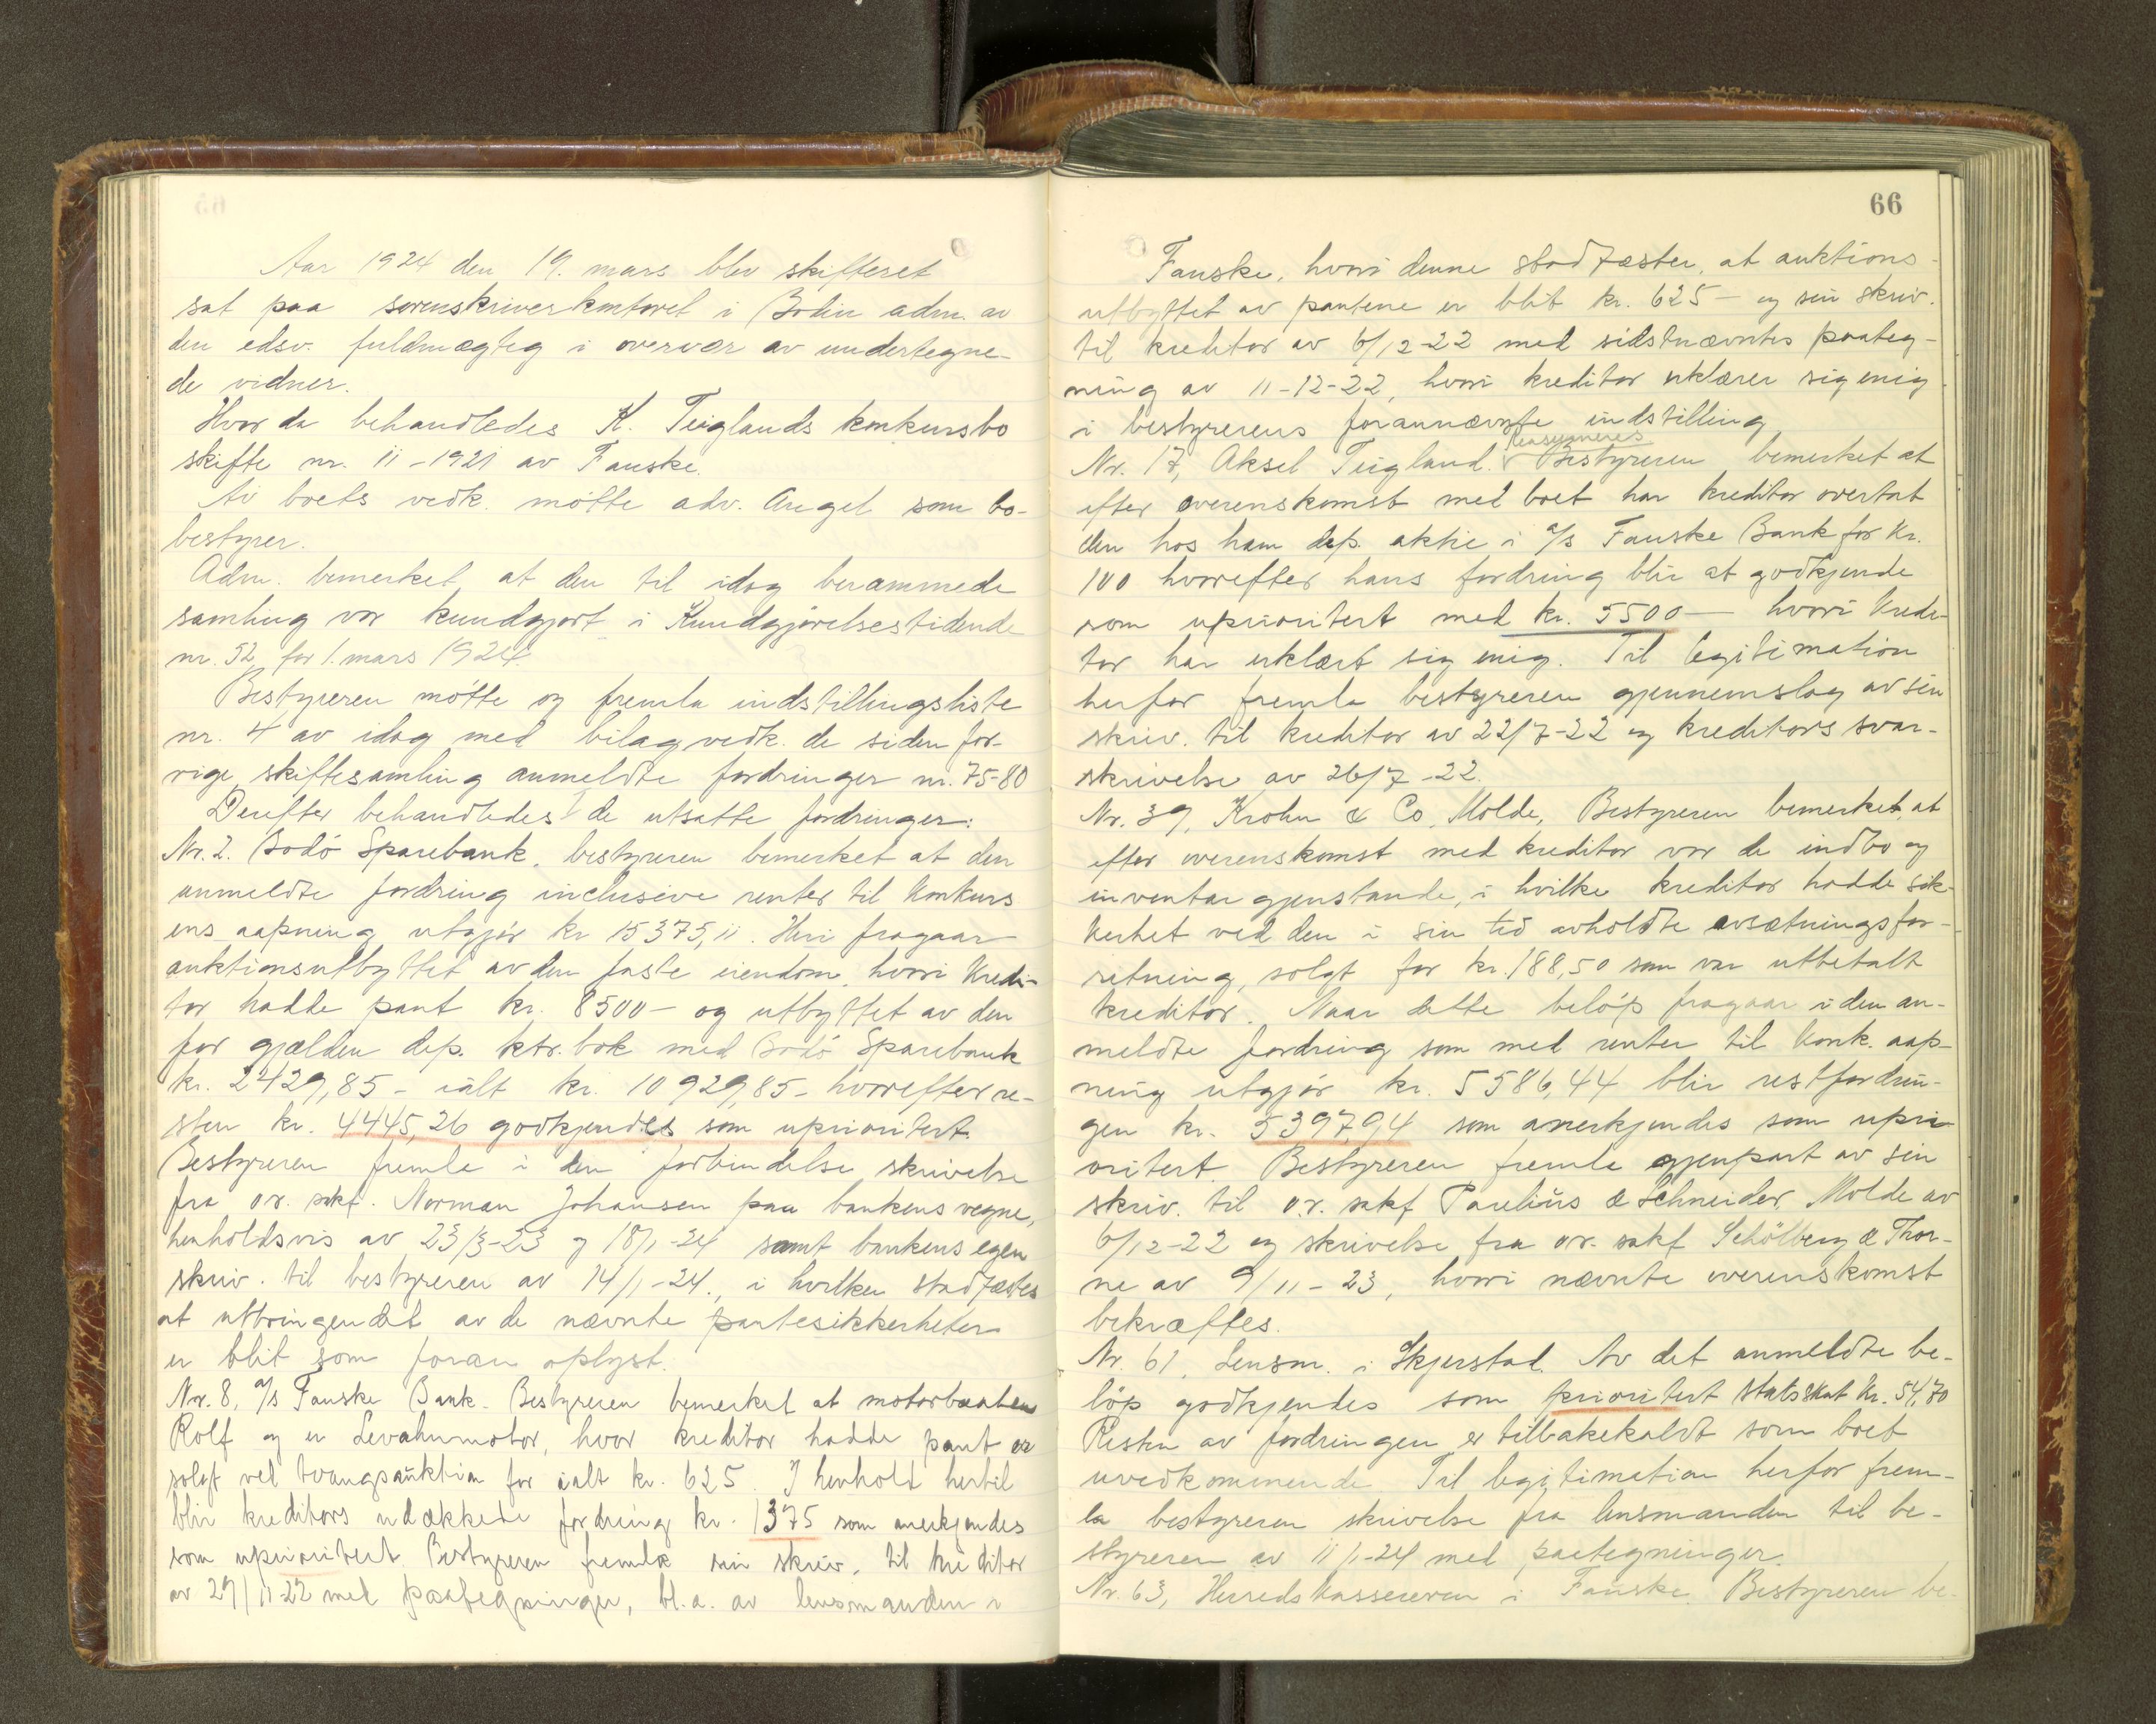 Aar 1924 den 19. mars blev skifteret
sat paa sorenskriverkontoret i Bodin adm. av
den edsv. fuldmægtig i overvær av undertegne-
de vidner.
Hvor da behandledes K. Teiglands konkursbo
skifte nr. 11-1921 av Fauske.
Av boets vedk. møtte adv. Angel som bo-
bestyrer.
Adm. bemerket at den til idag berammede
samling var kundgjort i Kundgjørelsestidende
nr. 52 for 1. mars 1924.
Bestyreren møtte og fremla indstillingsliste
nr. 4 av idag med bilag vedk. de siden for-
rige skiftesamling anmeldte fordringer nr. 75-80
Derefter behandledes de utsatte fordringer:
Nr. 2. Bodö Sparebank. bestyreren bemerket at den
anmeldte fordring inclusive renter til konkurs
ens aapning utgjør kr 15375,11. Heri fragaar
auktionsutbyttet av den faste eiendom, hvori kredi-
tor hadde pant kr. 8500- og utbyttet av den
for gjælden dep. ktr. bok med Bodö Sparebank
kr. 2429,85 - ialt kr. 10929,85 - hvorefter re-
sten kr. 4445,26 godkjendes som uprioritert.
Bestyreren fremla i den forbindelse skrivelse
fra o.r. sakf. Norman Johansen paa bankens vegne,
henholdsvis av 23/3-23 og 18/1-24 samt bankens egen
skriv. til bestyreren av 14/1-24., i hvilken stadfæstes
at utbringendet av de nævnte pantesikkerheter
er blit som foran oplyst.
Nr. 8, a/s Fauske Bank. Bestyreren bemerket at motorbaaten
Rolf og en Levahnmotor, hvor kreditor hadde pant er
solgt ved tvangsauktion for ialt kr. 625. I henhold hertil
blir kreditors udækkede fordring kr. 1375 som anerkjendes
som uprioritert. Bestyreren fremla sin skriv. til kreditor
av 29/11-22 med paategninger, bl.a. av lensmanden i
66
Fauske, hvori denne stadfæster, at auktions-
utbyttet av pantene er blit kr. 625 - og sin skriv.
til kreditor av 6/12-22 med sidstnævntes paateg-
ning av 11-12-22, hvori kreditor erklærer sig enig
i bestyrerens forannævnte indstilling
Nr. 17, Aksel Teigland. Bestyreren bemerket at
efter overenskomst med boet har kreditor overtat
den hos ham dep. aktie i a/s Fauske Bank for kr.
100 hvorefter hans fordring blir at godkjende
som uprioritert med kr. 5500 - hvori kredi-
tor har erklært sig enig. Til legitimation
herfor fremla bestyreren gjennemslag av sin
skriv. til kreditor av 22/7-22 og kreditors svar-
skrivelse av 26/7-22.
Nr. 39, Krohn & Co, Molde, Bestyreren bemerket, at
efter overenskomst med kreditor var de indbo og
inventargjenstande, i hvilke kreditor hadde sik-
kerhet ved den i sin tid avholdte avsætningsfor-
retning, solgt for kr. 188,50 som var utbetalt
kreditor. Naar dette beløp fragaar i den an-
meldte fordring som med renter til konk. aap-
ning utgjør kr. 5586,44 blir restfordrin-
gen kr. 5397,94 som anerkjendes som upri-
oritert. Bestyreren fremla gjenpart av sin
skriv. til o.r. sakf Paulius & Schneider, Molde av
6/12-22 og skrivelse fra o.r. sakf Schölberg & Thor-
ne av 9/11-23, hvori nævnte overenskomst
bekræftes.
Nr. 61, Lensm. i Skjerstad. Av det anmeldte be-
løp godkjendes som prioritert statsskat kr. 54,70
Resten av fordringen er tilbakekaldt som boet
uvedkommende. Til legitimation herfor frem-
la bestyreren skrivelse fra lensmanden til be-
styreren av 11/1-24 med paategninger.
Nr. 63, Herredskassereren i Fauske. Bestyreren be-